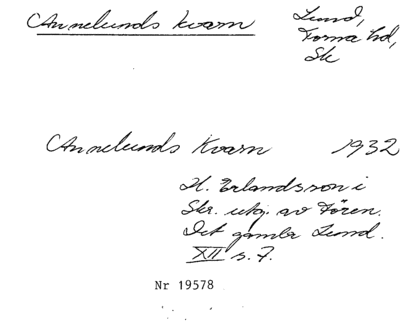 Annelunds kvarn
Lund,
Torna hd,
Sk
Annelunds Kvarn 1932
H. Erlandsson i
Skr. utg. av Fören.
Det gamla Lund.
XII s. 7.
Nr 19578